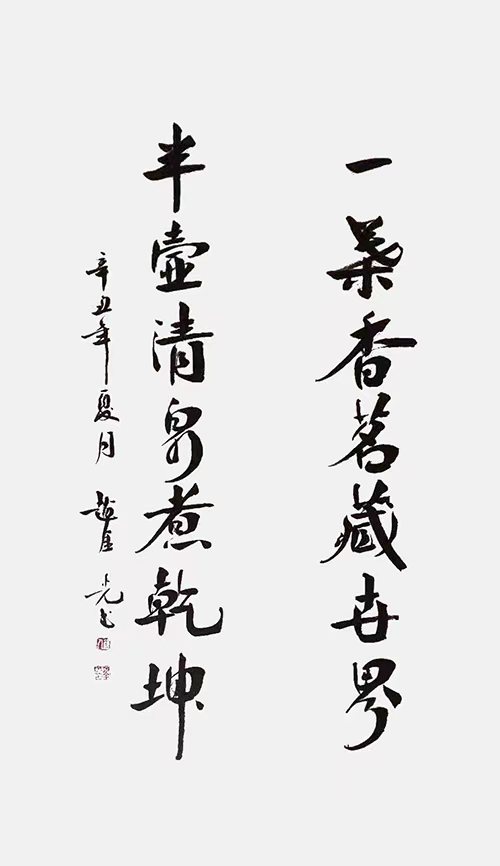 一葉香茗藏世界
半壺清泉煮乾坤
辛丑年夏月 趙 光书